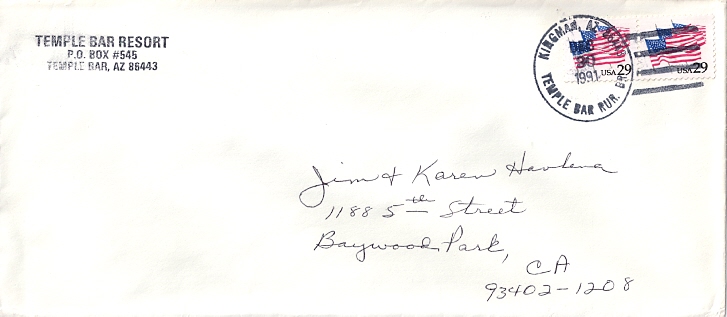 TEMPLE BAR RESORT
P.O. BOX #545
TEMPLE BAR, AZ 86443
KINGMAN, AZ
DEC
30
1991
TEMPLE BAR RUR. BR.
USA 29
USA 29
Jim & Karen Havlena
1188 5th Street
Baywood Park,
CA
93402-1208